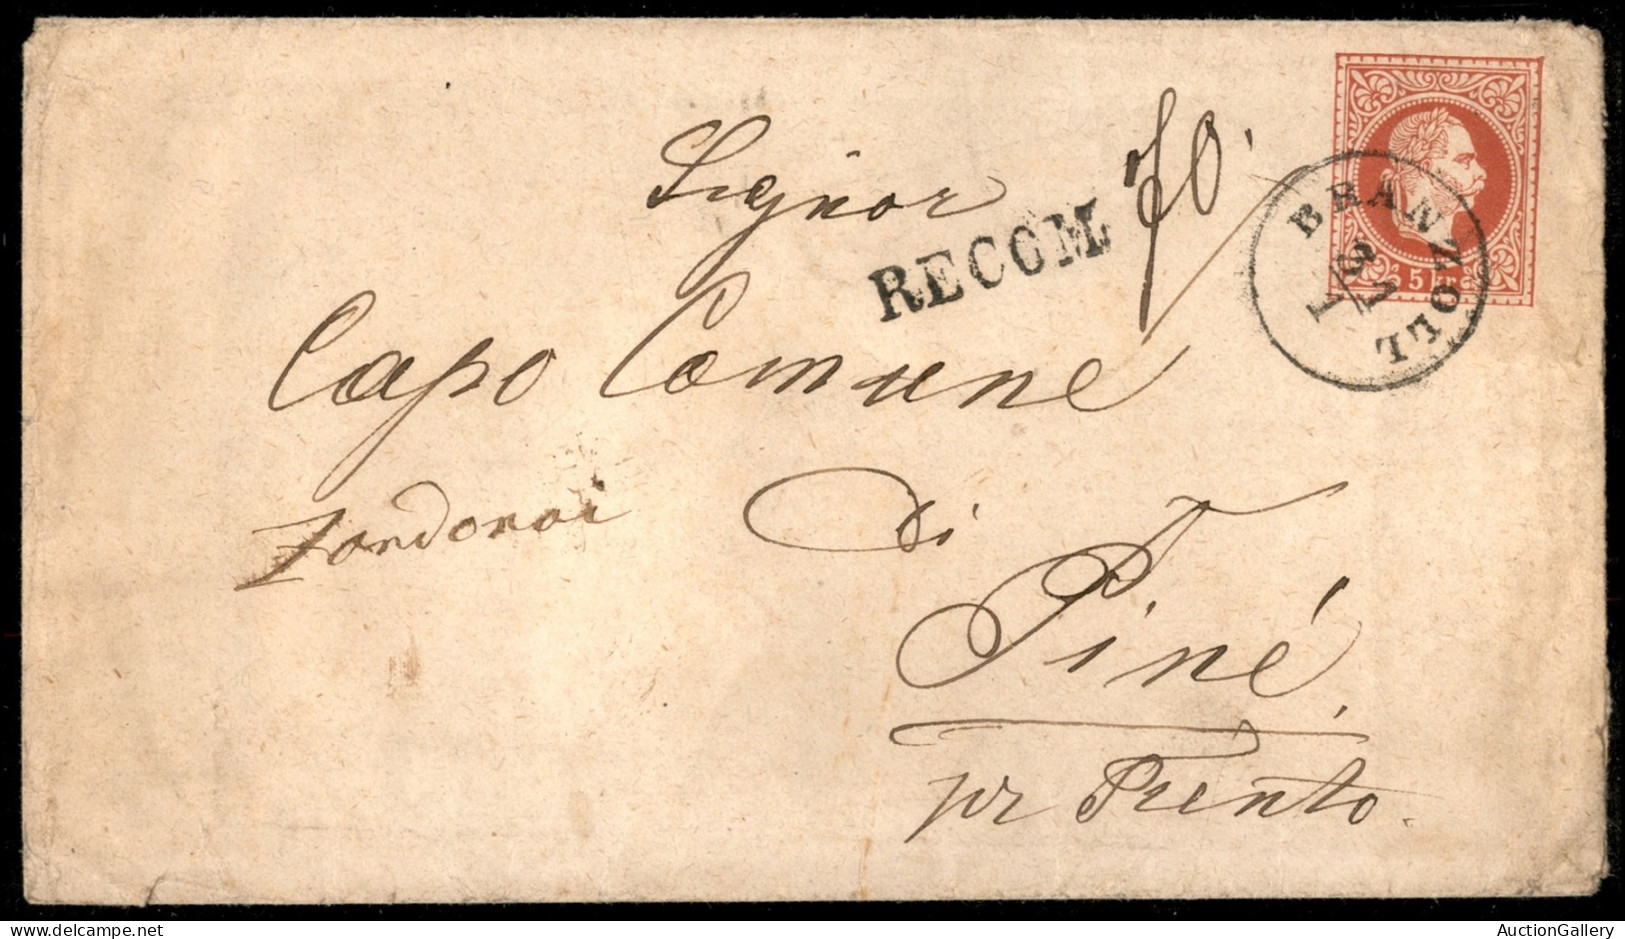 Signor
RECOM
BRANZOLL
5 kr
Capo Comune
Zandonai
di
Piné
pr Trento.
AuctionGallery